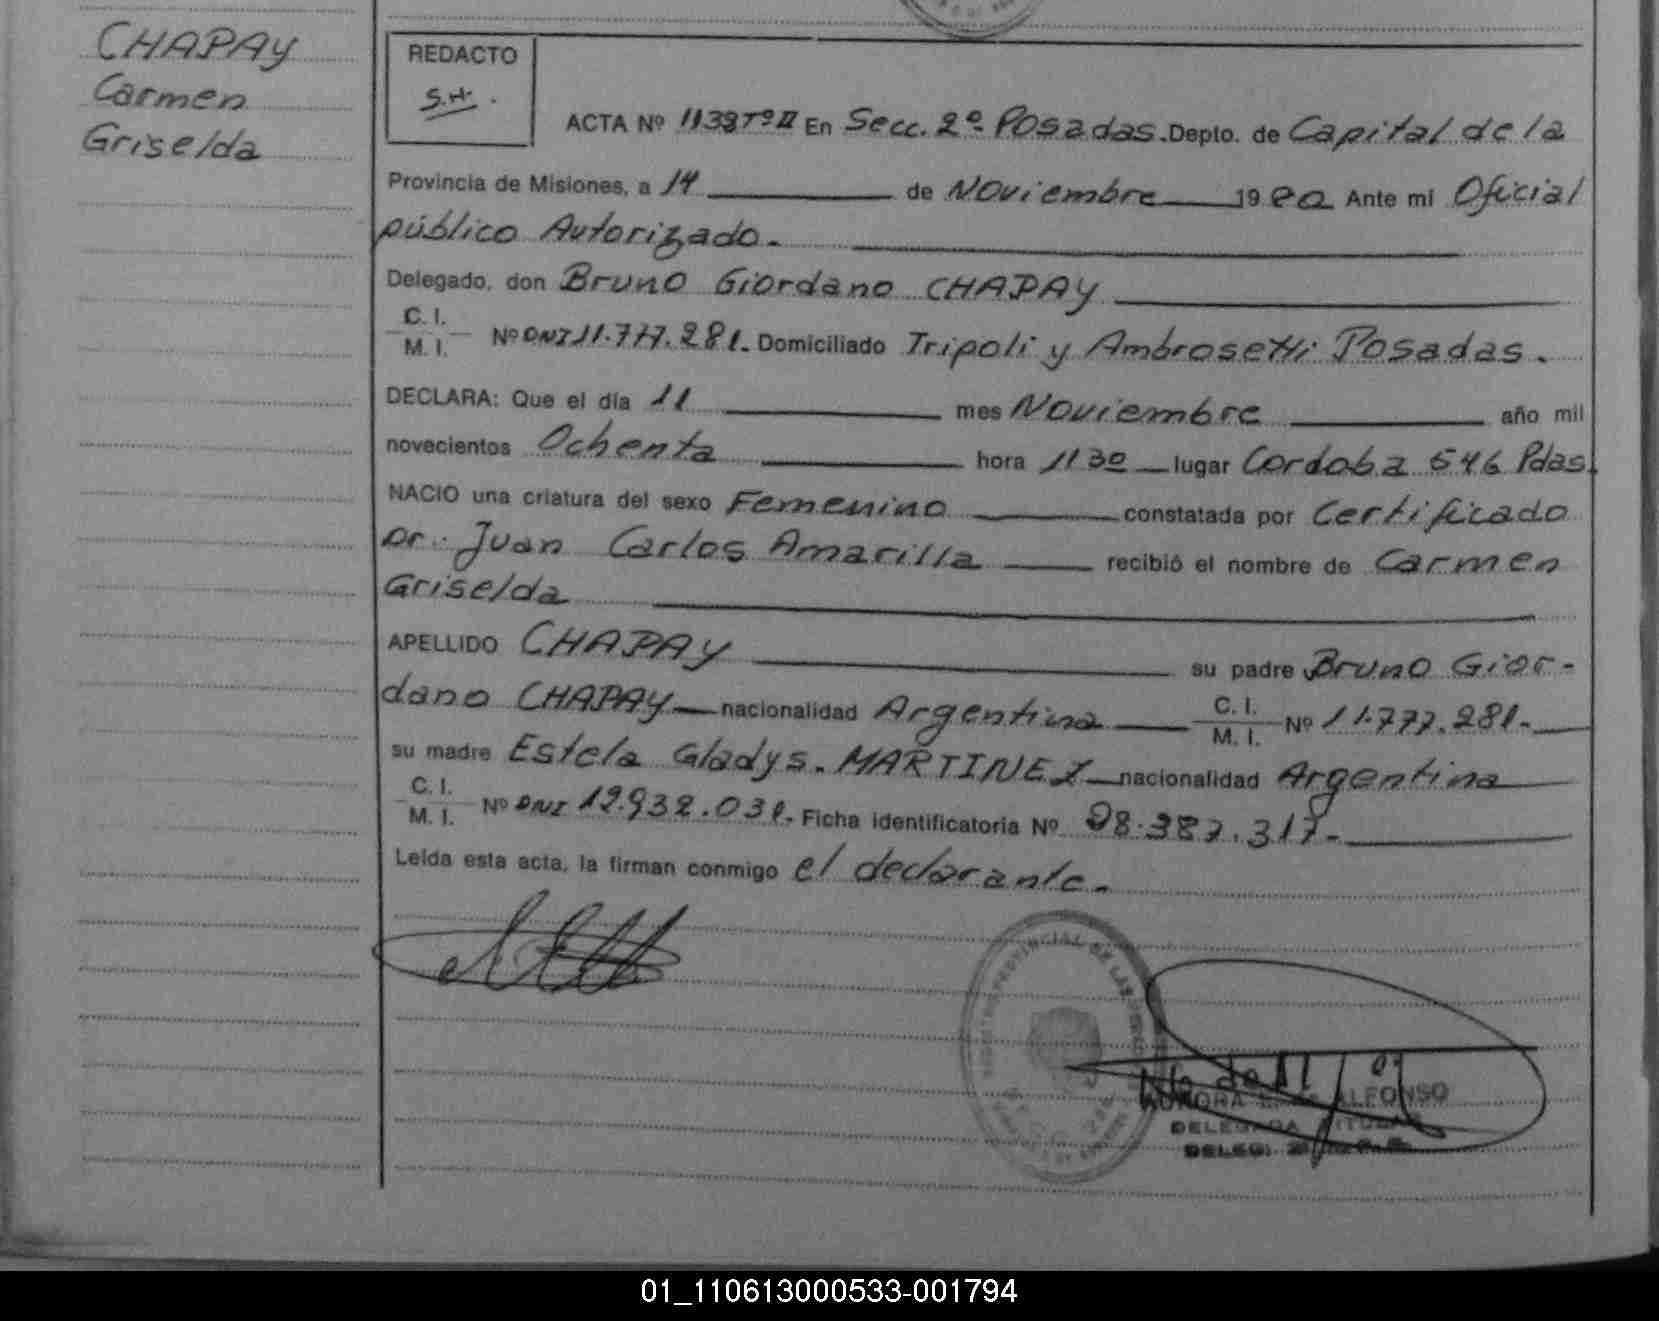 CHAPAY
Carmen
Griselda
REDACTO
S.H.
ACTA Nº 1139 Tº II En Secc. 2º Posadas. Depto. de Capital de la
Provincia de Misiones, a 14 de Noviembre 1980 Ante mi Oficial
público Autorizado.
Delegado, don Bruno Giordano CHAPAY
C. I.
M. I. Nº DNI 11.777.281. Domiciliado Tripoli y Ambrosetti Posadas.
DECLARA: Que el día 11 mes Noviembre año mil
novecientos Ochenta hora 11 30 lugar Cordoba 546 Pdas.
NACIO una criatura del sexo Femenino constatada por Certificado
Dr. Juan Carlos Amarilla recibió el nombre de Carmen
Griselda
APELLIDO CHAPAY su padre Bruno Gior-
dano CHAPAY nacionalidad Argentina C. I.
M. I. Nº 11.777.281.
su madre Estela Gladys. MARTINEZ nacionalidad Argentina
C. I.
M. I. Nº DNI 12.932.031. Ficha identificatoria Nº 28.387.317.
Leída esta acta, la firman conmigo el declarante.
PROVINCIAL DE LAS
AURORA ALFONSO
DELEGADA TITULAR
01_110613000533-001794